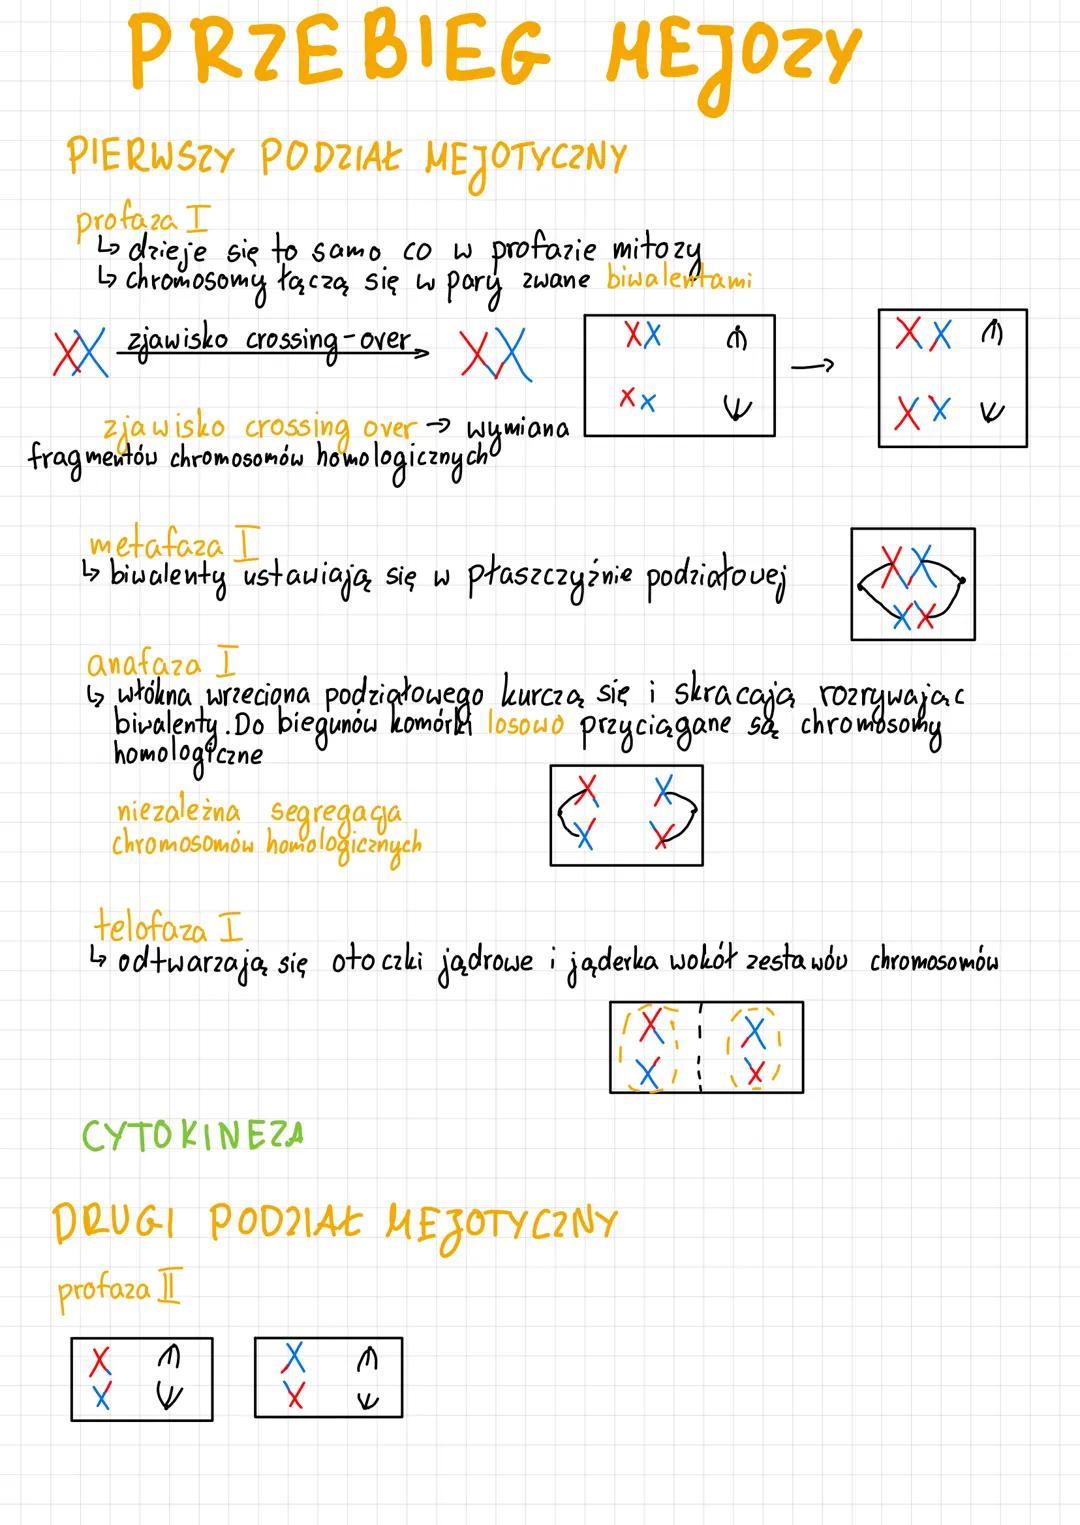 PRZEBIEG MEJOZY
PIERWSZY PODZIAŁ MEJOTYCZNY
profaza I
↳ dzieje się to samo co w profazie mitozy
↳ chromosomy łączą się w pary zwane biwalentami
zjawisko crossing-over
zjawisko crossing over → wymiana
fragmentów chromosomów homologicznych
metafaza I
↳ biwalenty ustawiają się w płaszczyźnie podziałowej
anafaza I
↳ włókna wrzeciona podziałowego kurczą się i skracają rozrywając
biwalenty. Do biegunów komórki losowo przyciągane są chromosomy
homologiczne
niezależna segregacja
chromosomów homologicznych
telofaza I
↳ odtwarzają się otoczki jądrowe i jąderka wokół zestawów chromosomów
CYTOKINEZA
DRUGI PODZIAŁ MEJOTYCZNY
profaza II